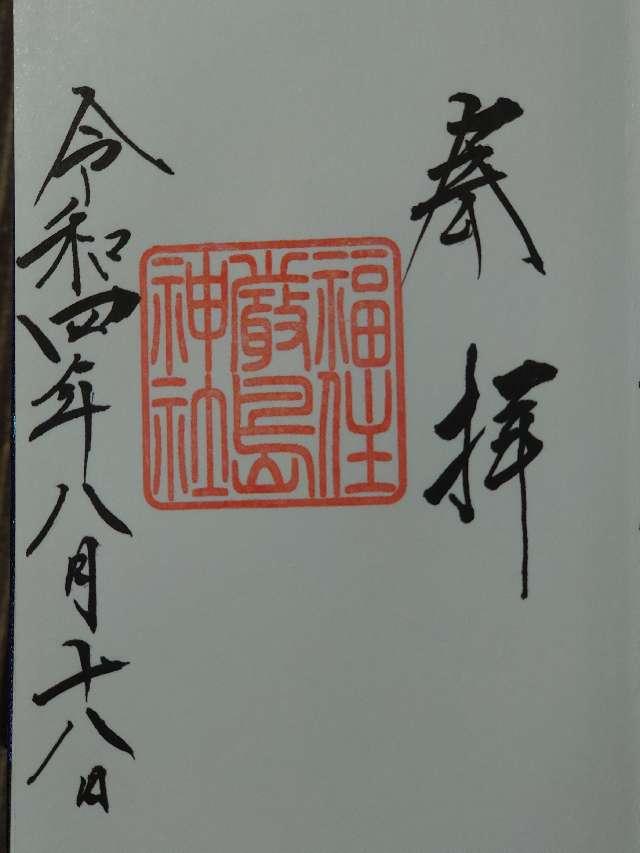 奉拝
福住
厳島
神社
令和四年八月十八日